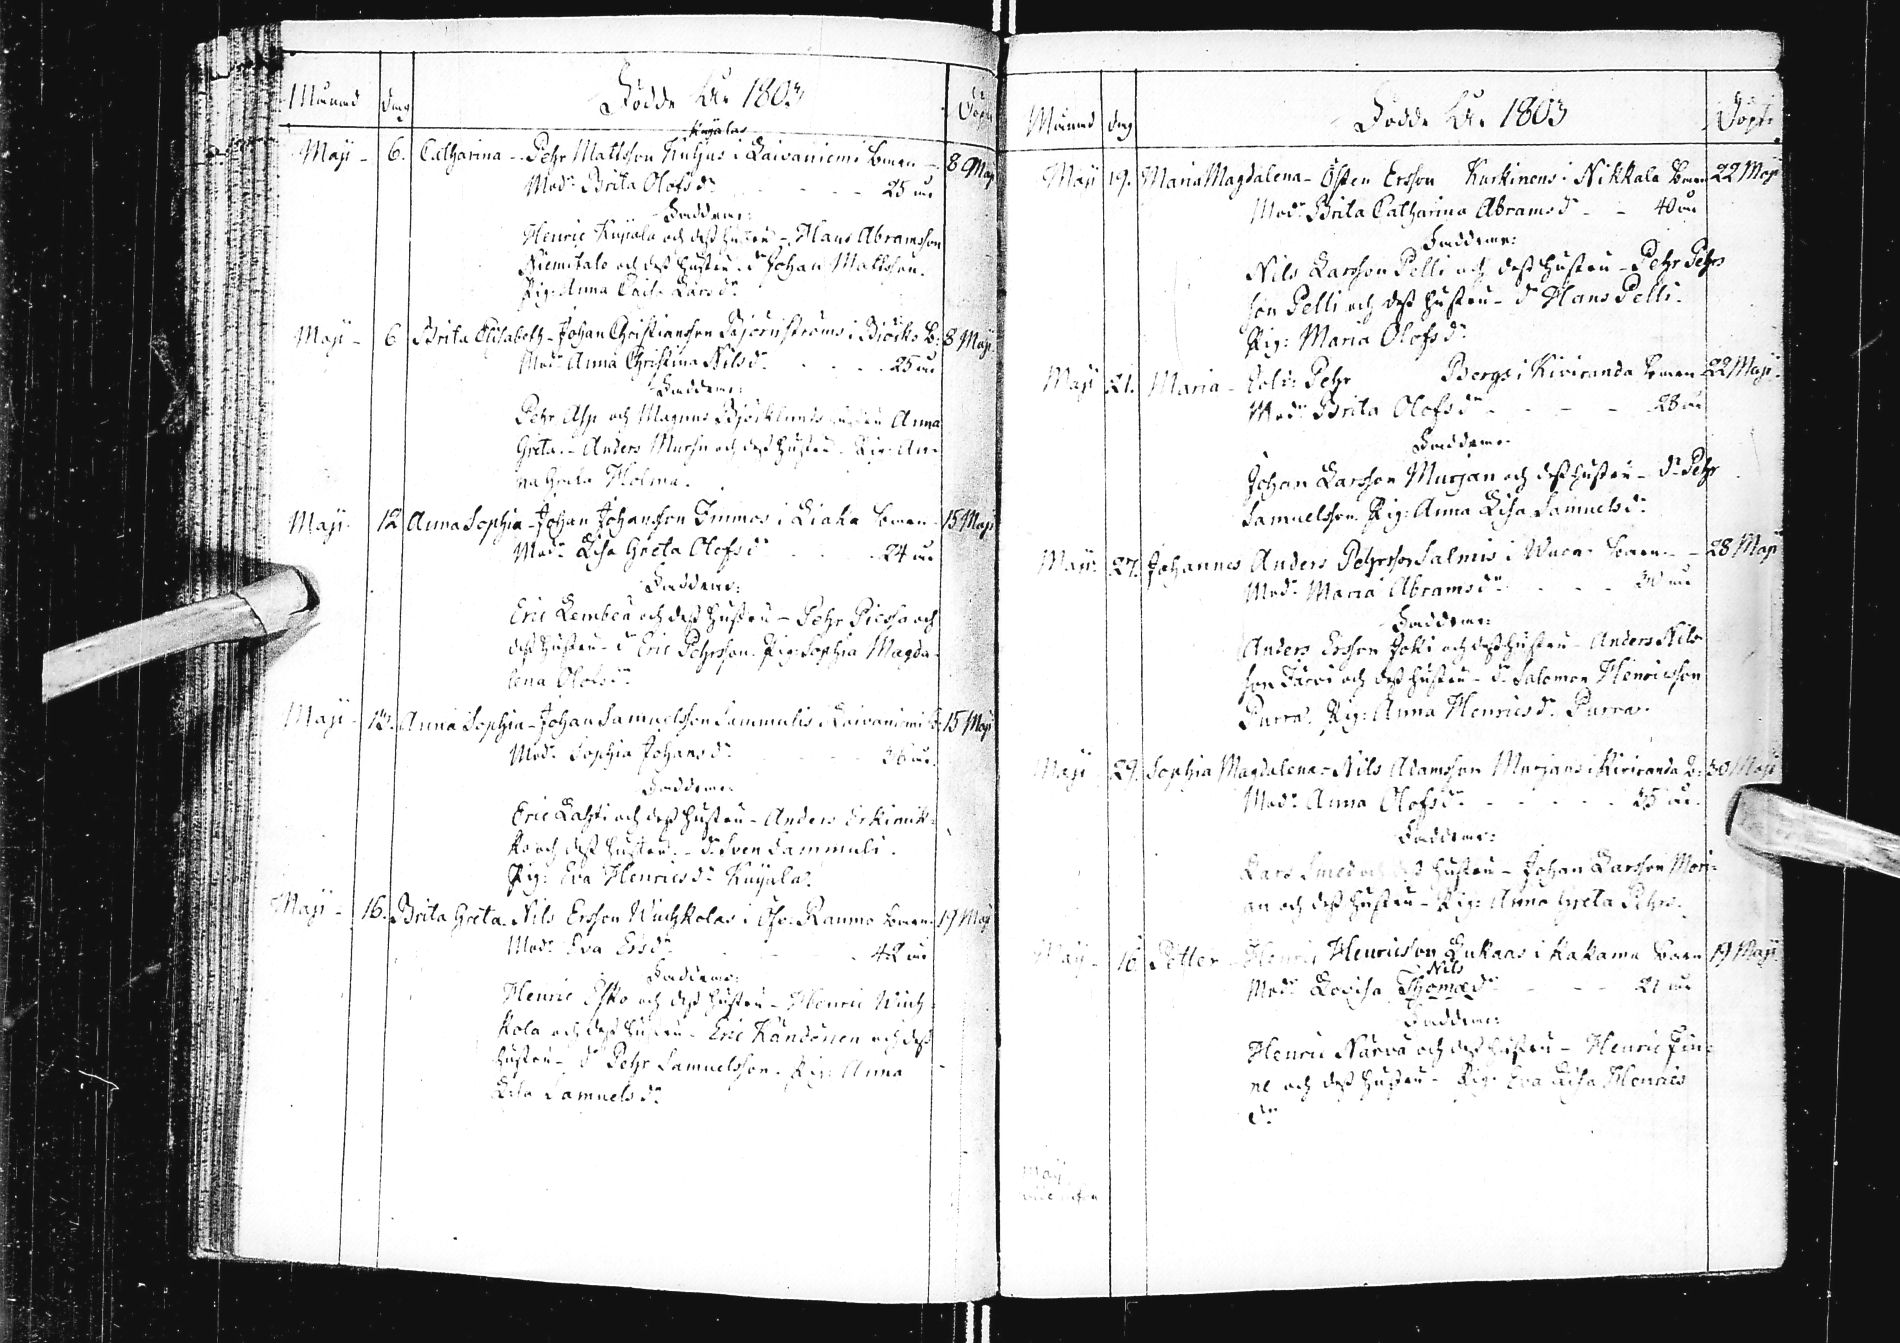 Månad dag Födde År 1803 Döpte
Kuyalas
Maji - 6. Catharina - Pehr Mattsson Kuhjus i Laivaniemi boman - 8 Maj
Modr Brita Olofsdr - - - 25 år
Faddrar:
Henric Kuyala och dess hustru - Hans Abramsson
Niemitalo och dess hustru. dr Johan Mattsson.
Pig: Anna Cait: Larsdr
Maji - 6 Brita Elisabeth - Johan Christiansson Björnströms i Biörks B: 8 Maji
Modr Anna Christina Nilsdr - - - 25 år
Faddrar:
Pehr Asp och Magnus Björklunds hustru Anna
Greta. - Anders Mursu och dess hustru - Pig: An-
na Greta Holma.
Maji - 12 Anna Sophia - Johan Johansson Immos i Liaka boman - 15 Maji
Modr Lisa Greta Olofsdr - - - 24 år
Faddrar:
Eric Lembea och dess hustru - Pehr Piessa och
dess hustru - dr Eric Pehrsson. Pig: Sophia Magda-
lena Olofsdr
Maji - 13. Anna Sophia - Johan Samuelsson Sammulis i Laivaniemi B: 15 Maji
Modr Sophia Johansdr - - - 36 år.
Faddrar:
Eric Lahti och dess hustru - Anders Erkinik-
ko och dess hustru. - dr Sven Sammuli.
Pig: Eva Henricsdr Kuyala.
Maji - 16. Brita Greta. Nils Ersson Wuchkolas i Ofv: Raumo boman 19 Maj
Modr Eva Ersdr - - - 42 år
Faddrar:
Henric Esko och dess hustru - Henric Wuch-
kola och dess hustru - Eric Kändönen och dess
hustru - dr Pehr Samuelsson. Pig: Anna
Lisa Samuelsdr
Månad dag Födde År 1803 Döpte
Maji 19. Maria Magdalena - Östen Ersson Kurkinens i Nikkala boman 22 Maji
Modr Brita Catharina Abramsdr - - 40 år
Faddrar:
Nils Larsson Pelli och dess hustru - Pehr Pehrs
son Pelli och dess hustru - dr Hans Pelli.
Pig: Maria Olofsdr
Maji 21. Maria - Pehr Bergs i Kiviranda boman 22 Maji
Modr Brita Olofsdr - - - 28 år
Faddrar
Johan Larsson Murjan och dess hustru - dr Pehr
Samuelsson. Pig: Anna Lisa Samuelsdr
Maji 27. Johannes Anders Pehrsson Salmis i boman - 28 Maji
Modr Maria Abramsdr - - - 30 år
Faddrar:
Anders Ersson Joki och dess hustru - Anders Nils-
son Järvi och dess hustru - dr Salomon Henricsson
Purra. Pig: Anna Henricsdr Purra.
Maji 29. Sophia Magdalena - Nils Adamsson Murjans i Kiviranda B: 30 Maji
Modr Anna Olofsdr - - - 25 år.
Faddrar:
Lars Smed och dess hustru - Johan Larsson Mori-
an och dess hustru - Pig: Anna Greta Pehrs.
Maji - 16 Petter - Henric Henricsson Lukaas i Kakama boman 19 Maji
Nils
Modr Lovisa Thomædr - - - 21 år
Faddrar:
Henric Närvä och dess hustru - Henric Fin-
ne och dess hustru - Pig: Eva Lisa Henrics
dr
Maij